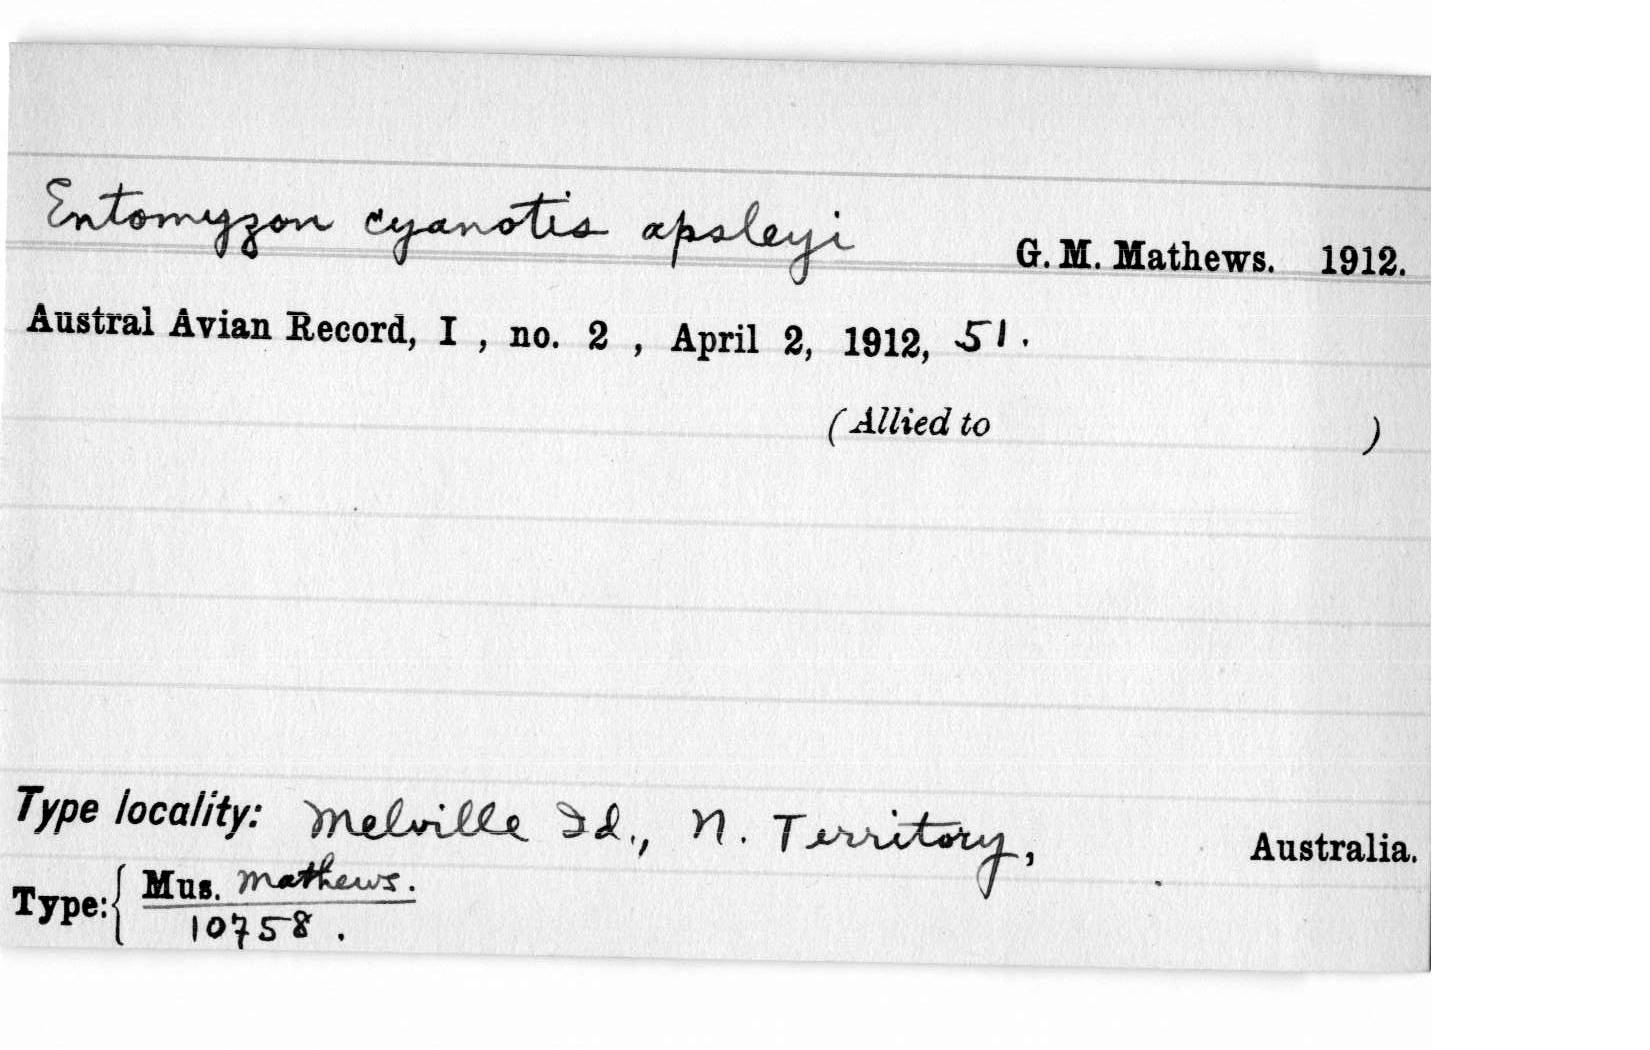 Entomyzon cyanotis apsleyi G. M. Mathews. 1912.
Austral Avian Record, I , no. 2 , April 2, 1912, 51.
(Allied to )
Type locality: Melville Id., N. Territory, Australia.
Type: { Mus. Mathews.
10758.